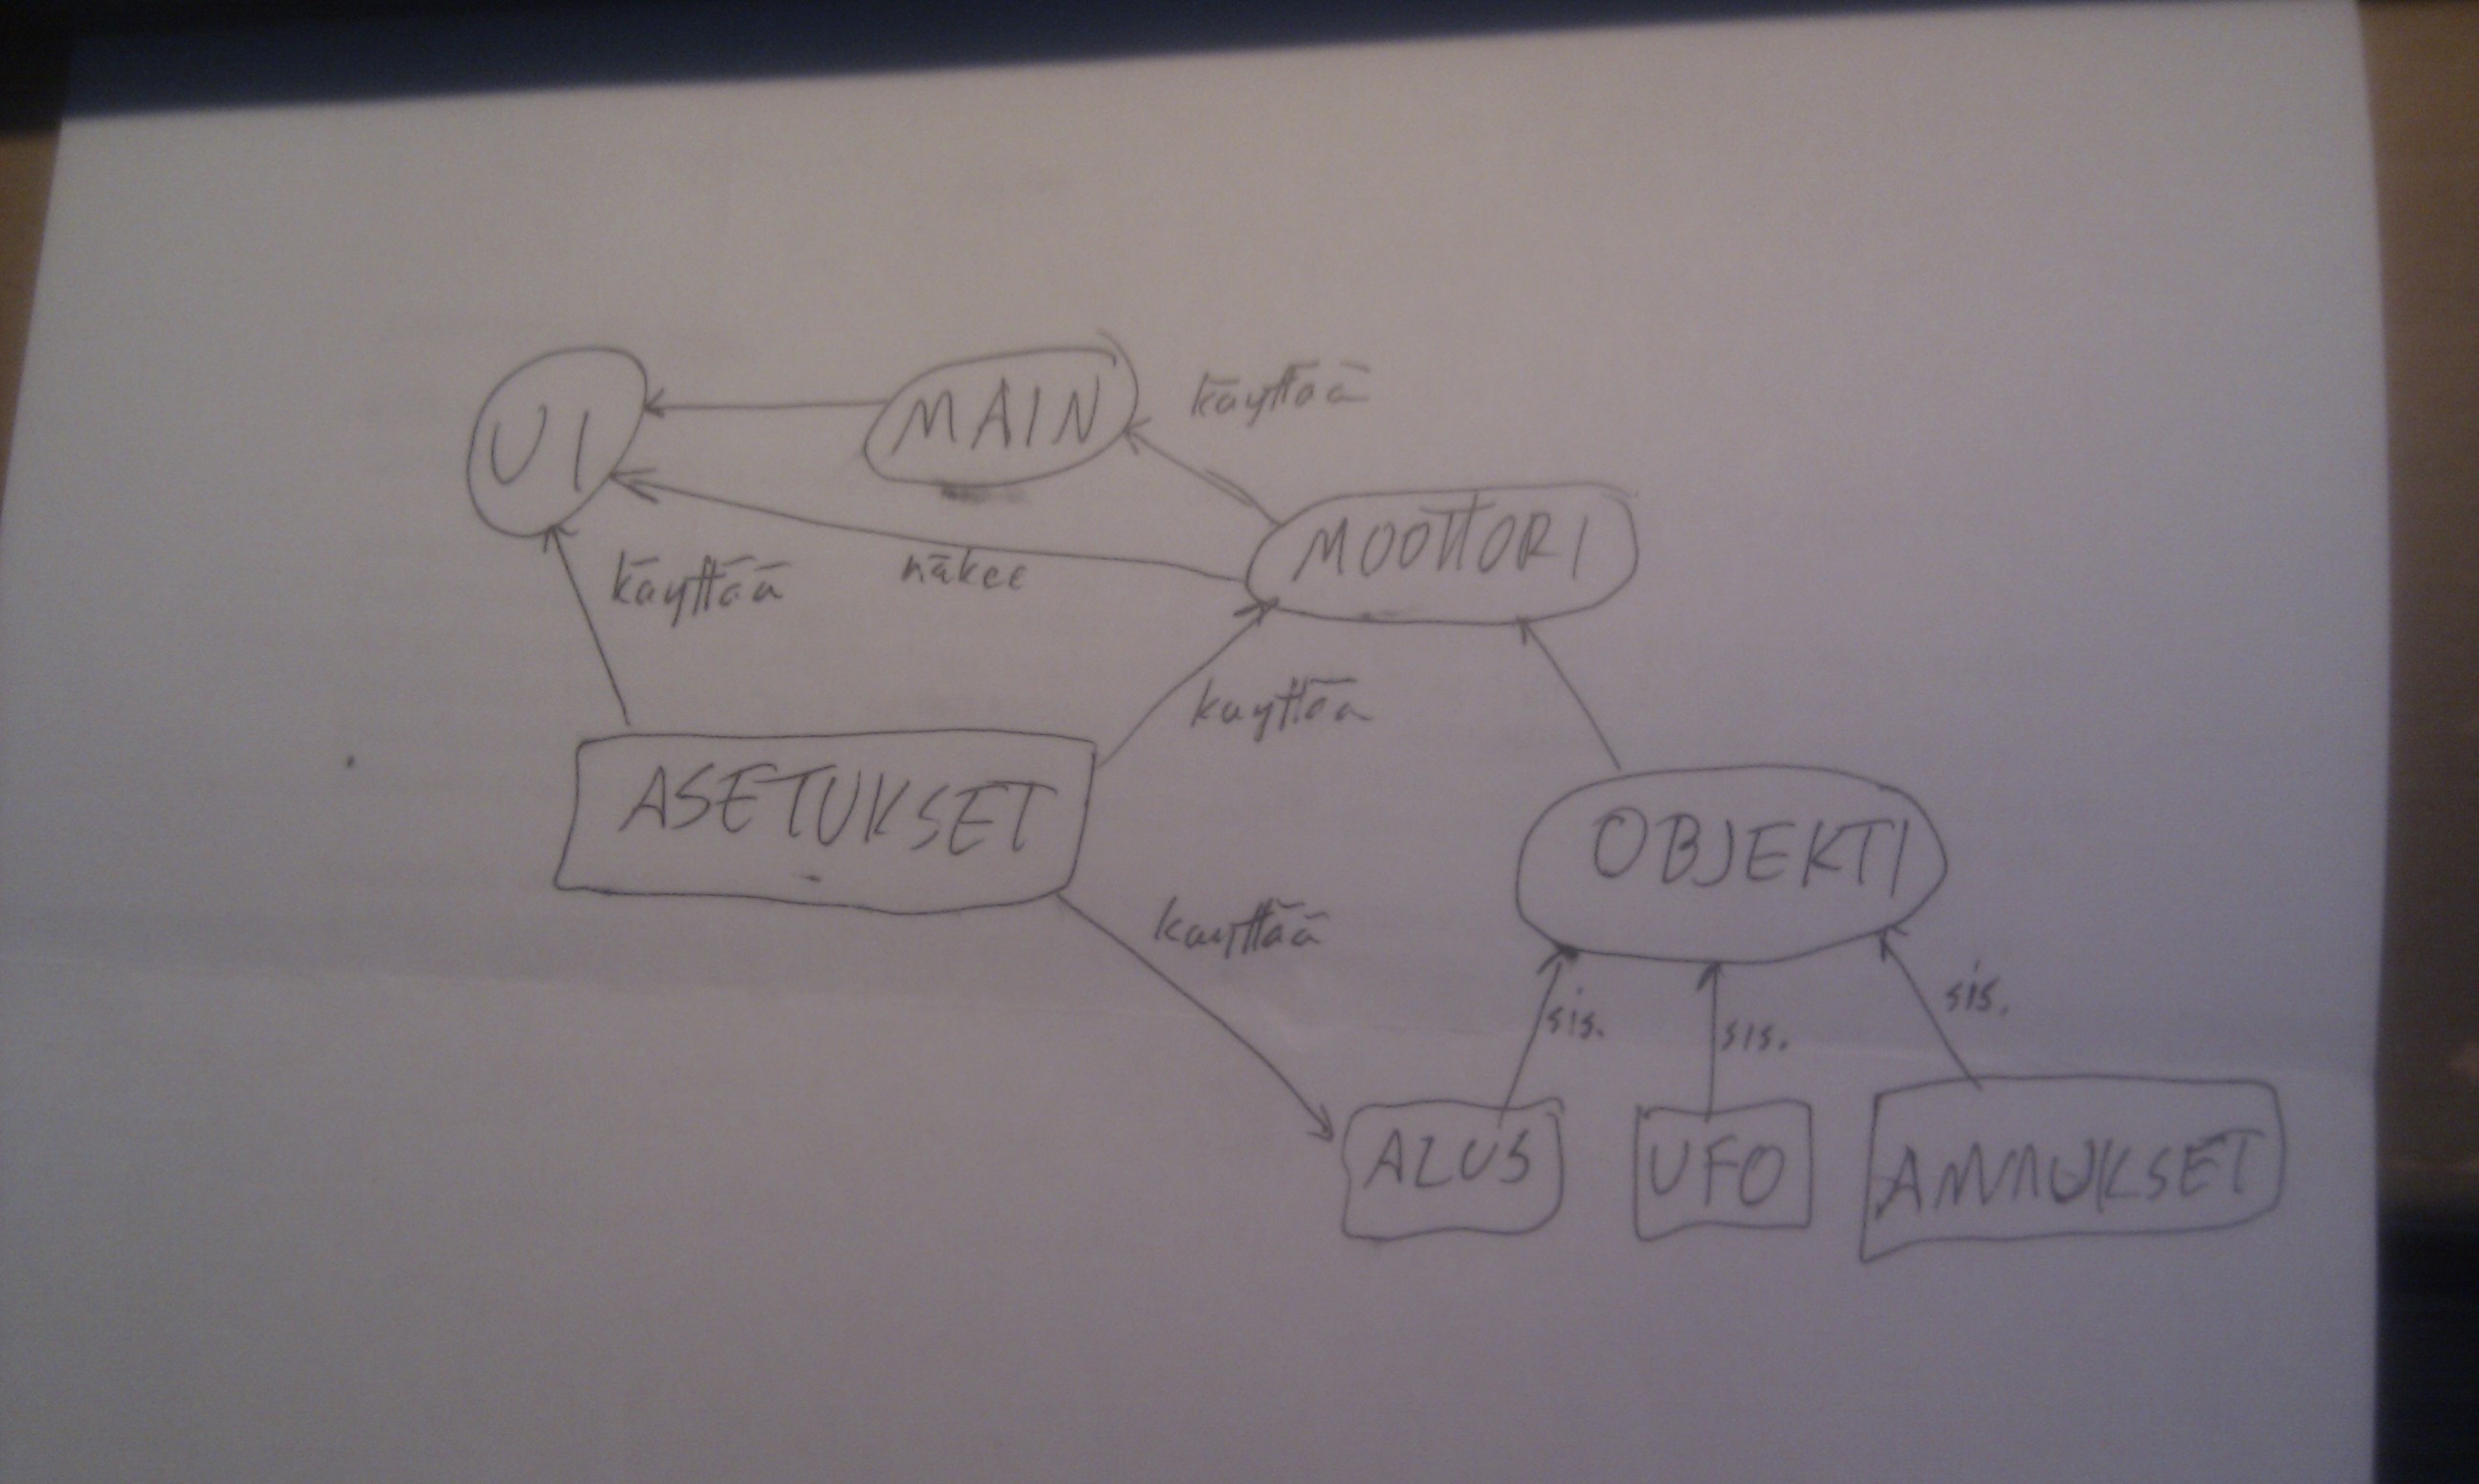 UI
MAIN
käyttää
MOOTTORI
käyttää
näkee
kayttää
ASETUKSET
OBJEKTI
kayttää
sis.
sis.
sis.
ALUS
UFO
AMMUKSET